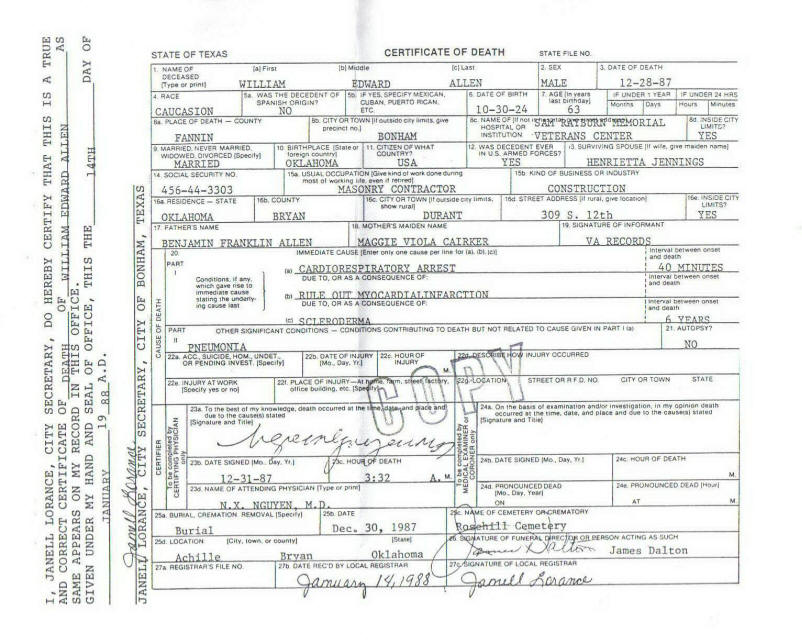 I, JANELL LORANCE, CITY SECRETARY, DO HEREBY CERTIFY THAT THIS IS A TRUE
AND CORRECT CERTIFICATE OF DEATH OF WILLIAM EDWARD ALLEN AS
SAME APPEARS ON MY RECORD IN THIS OFFICE.
GIVEN UNDER MY HAND AND SEAL OF OFFICE, THIS THE 14TH DAY OF
JANUARY 19 88 A.D.
Janell Lorance
JANELL LORANCE, CITY SECRETARY, CITY OF BONHAM, TEXAS
STATE OF TEXAS CERTIFICATE OF DEATH STATE FILE NO.
1. NAME OF DECEASED [Type or print] [a] First [b] Middle [c] Last 2. SEX 3. DATE OF DEATH
WILLIAM EDWARD ALLEN MALE 12-28-87
4. RACE 5a. WAS THE DECEDENT OF SPANISH ORIGIN? 5b. IF YES, SPECIFY MEXICAN, CUBAN, PUERTO RICAN, ETC. 6. DATE OF BIRTH 7. AGE [In years last birthday] IF UNDER 1 YEAR IF UNDER 24 HRS
Months Days Hours Minutes
CAUCASION NO 10-30-24 63
8a. PLACE OF DEATH — COUNTY 8b. CITY OR TOWN [If outside city limits, give precinct no.] 8c. NAME OF [If not in HOSPITAL OR INSTITUTION 8d. INSIDE CITY LIMITS?
FANNIN BONHAM SAM RAYBURN MEMORIAL VETERANS CENTER YES
9. MARRIED, NEVER MARRIED, WIDOWED, DIVORCED [Specify] 10. BIRTHPLACE [State or foreign country] 11. CITIZEN OF WHAT COUNTRY? 12. WAS DECEDENT EVER IN U.S. ARMED FORCES? 13. SURVIVING SPOUSE [If wife, give maiden name]
MARRIED OKLAHOMA USA YES HENRIETTA JENNINGS
14. SOCIAL SECURITY NO. 15a. USUAL OCCUPATION [Give kind of work done during most of working life, even if retired] 15b. KIND OF BUSINESS OR INDUSTRY
456-44-3303 MASONRY CONTRACTOR CONSTRUCTION
16a. RESIDENCE — STATE 16b. COUNTY 16c. CITY OR TOWN [If outside city limits, show rural] 16d. STREET ADDRESS [If rural, give location] 16e. INSIDE CITY LIMITS?
OKLAHOMA BRYAN DURANT 309 S. 12th YES
17. FATHER'S NAME 18. MOTHER'S MAIDEN NAME 19. SIGNATURE OF INFORMANT
BENJAMIN FRANKLIN ALLEN MAGGIE VIOLA CAIRKER VA RECORDS
CAUSE OF DEATH
20. PART I IMMEDIATE CAUSE [Enter only one cause per line for (a), (b), (c)] Interval between onset and death
(a) CARDIORESPIRATORY ARREST 40 MINUTES
Conditions, if any, which gave rise to immediate cause stating the underlying cause last
DUE TO, OR AS A CONSEQUENCE OF: Interval between onset and death
(b) RULE OUT MYOCARDIALINFARCTION
DUE TO, OR AS A CONSEQUENCE OF: Interval between onset and death
(c) SCLERODERMA 6 YEARS
PART II OTHER SIGNIFICANT CONDITIONS — CONDITIONS CONTRIBUTING TO DEATH BUT NOT RELATED TO CAUSE GIVEN IN PART I (a) 21. AUTOPSY?
PNEUMONIA NO
22a. ACC., SUICIDE, HOM., UNDET., OR PENDING INVEST. [Specify] 22b. DATE OF INJURY [Mo., Day, Yr.] 22c. HOUR OF INJURY M. 22d. DESCRIBE HOW INJURY OCCURRED
COPY
22e. INJURY AT WORK [Specify yes or no] 22f. PLACE OF INJURY—At home, farm, street, factory, office building, etc. [Specify] 22g. LOCATION STREET OR R.F.D. NO. CITY OR TOWN STATE
CERTIFIER
To be completed by CERTIFYING PHYSICIAN only
23a. To the best of my knowledge, death occurred at the time, date, and place and due to the cause(s) stated [Signature and Title]
23b. DATE SIGNED [Mo., Day, Yr.] 23c. HOUR OF DEATH
12-31-87 3:32 A. M.
23d. NAME OF ATTENDING PHYSICIAN [Type or print]
N.X. NGUYEN, M.D.
To be completed by MEDICAL EXAMINER or CORONER only
24a. On the basis of examination and/or investigation, in my opinion death occurred at the time, date, and place and due to the cause(s) stated [Signature and Title]
24b. DATE SIGNED [Mo., Day, Yr.] 24c. HOUR OF DEATH M.
24d. PRONOUNCED DEAD [Mo., Day, Year] ON 24e. PRONOUNCED DEAD [Hour] AT M.
25a. BURIAL, CREMATION, REMOVAL [Specify] 25b. DATE 25c. NAME OF CEMETERY OR CREMATORY
Burial Dec. 30, 1987 Rosehill Cemetery
25d. LOCATION [City, town, or county] [State] 26. SIGNATURE OF FUNERAL DIRECTOR OR PERSON ACTING AS SUCH
Achille Bryan Oklahoma James Dalton James Dalton
27a. REGISTRAR'S FILE NO. 27b. DATE REC'D BY LOCAL REGISTRAR 27c. SIGNATURE OF LOCAL REGISTRAR
January 14, 1988 Janell Lorance